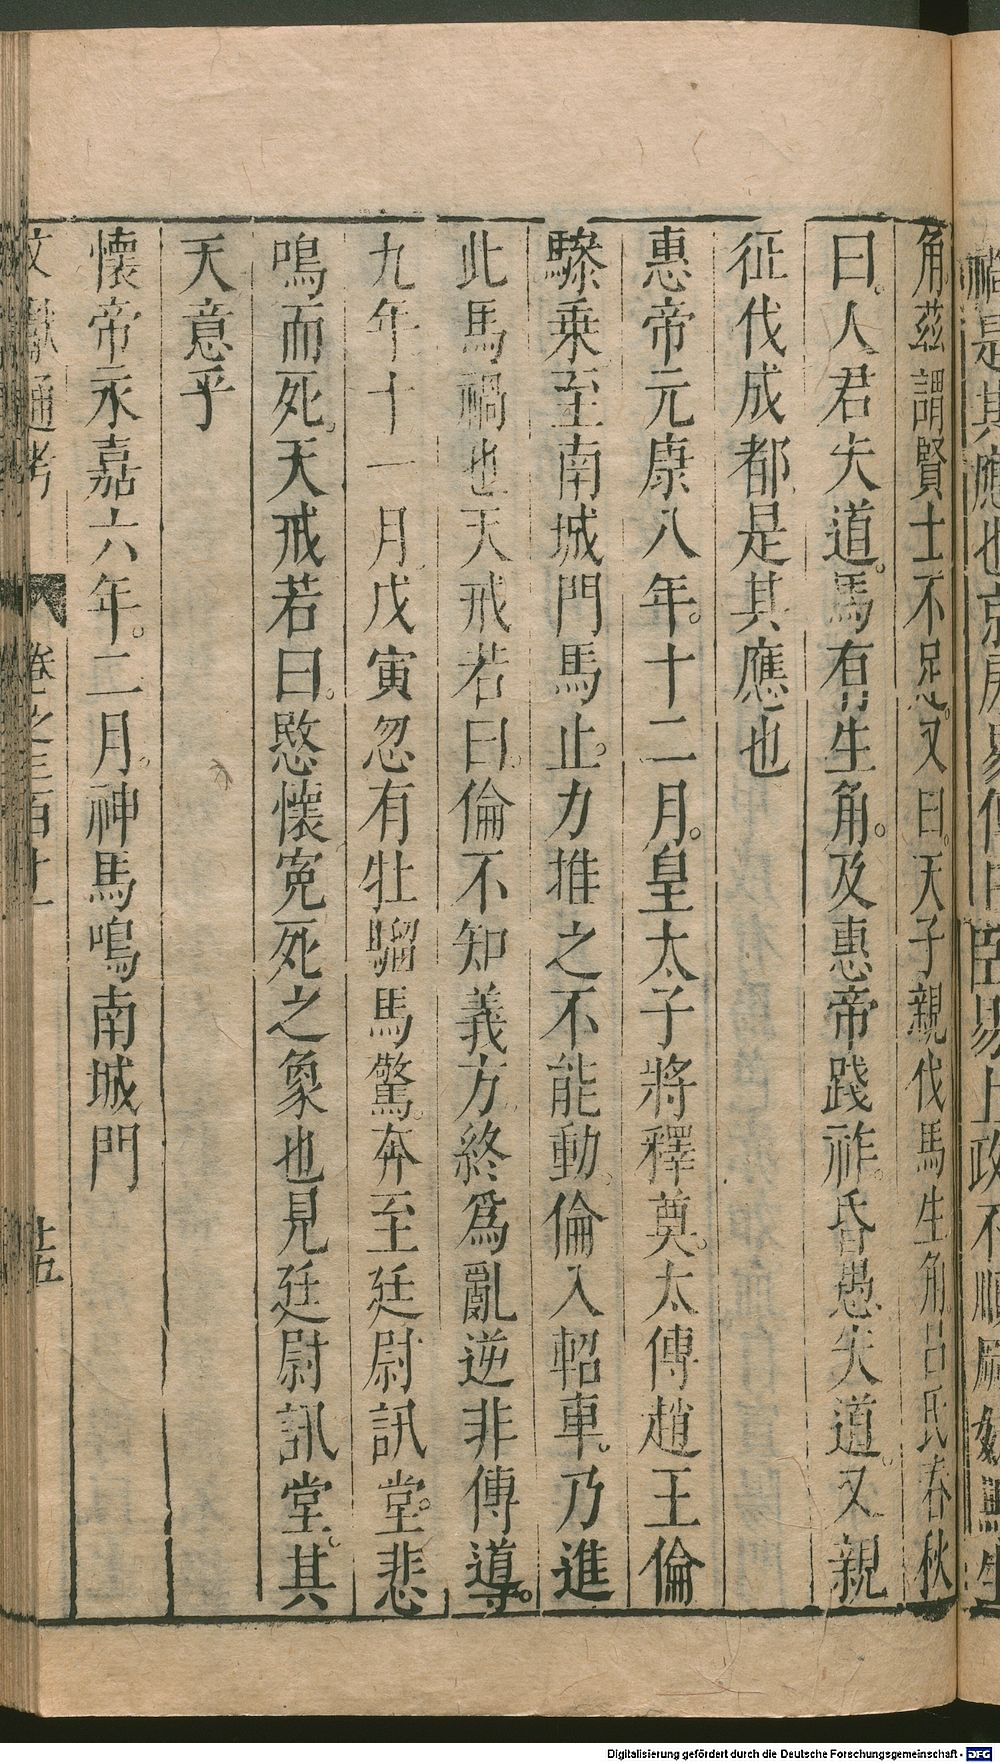 角茲謂賢士不足又曰天子親伐馬生角呂氏春秋
曰人君失道馬有生角及惠帝踐祚昏愚失道又親
征伐成都是其應也
惠帝元康八年十二月皇太子將釋奠太傅趙王倫
驂乗至南城門馬止力推之不能動倫入軺車乃進
此馬禍也天戒若曰倫不知義方終爲亂逆非傅導
九年十一月戊寅忽有牡騮馬驚奔至廷尉訊堂悲
鳴而死天戒若曰愍懷寃死之象也見廷尉訊堂其
天意乎
懷帝永嘉六年二月神馬鳴南城門
文獻通考 卷之三百十一 十五
Digitalisierung gefördert durch die Deutsche Forschungsgemeinschaft - DFG